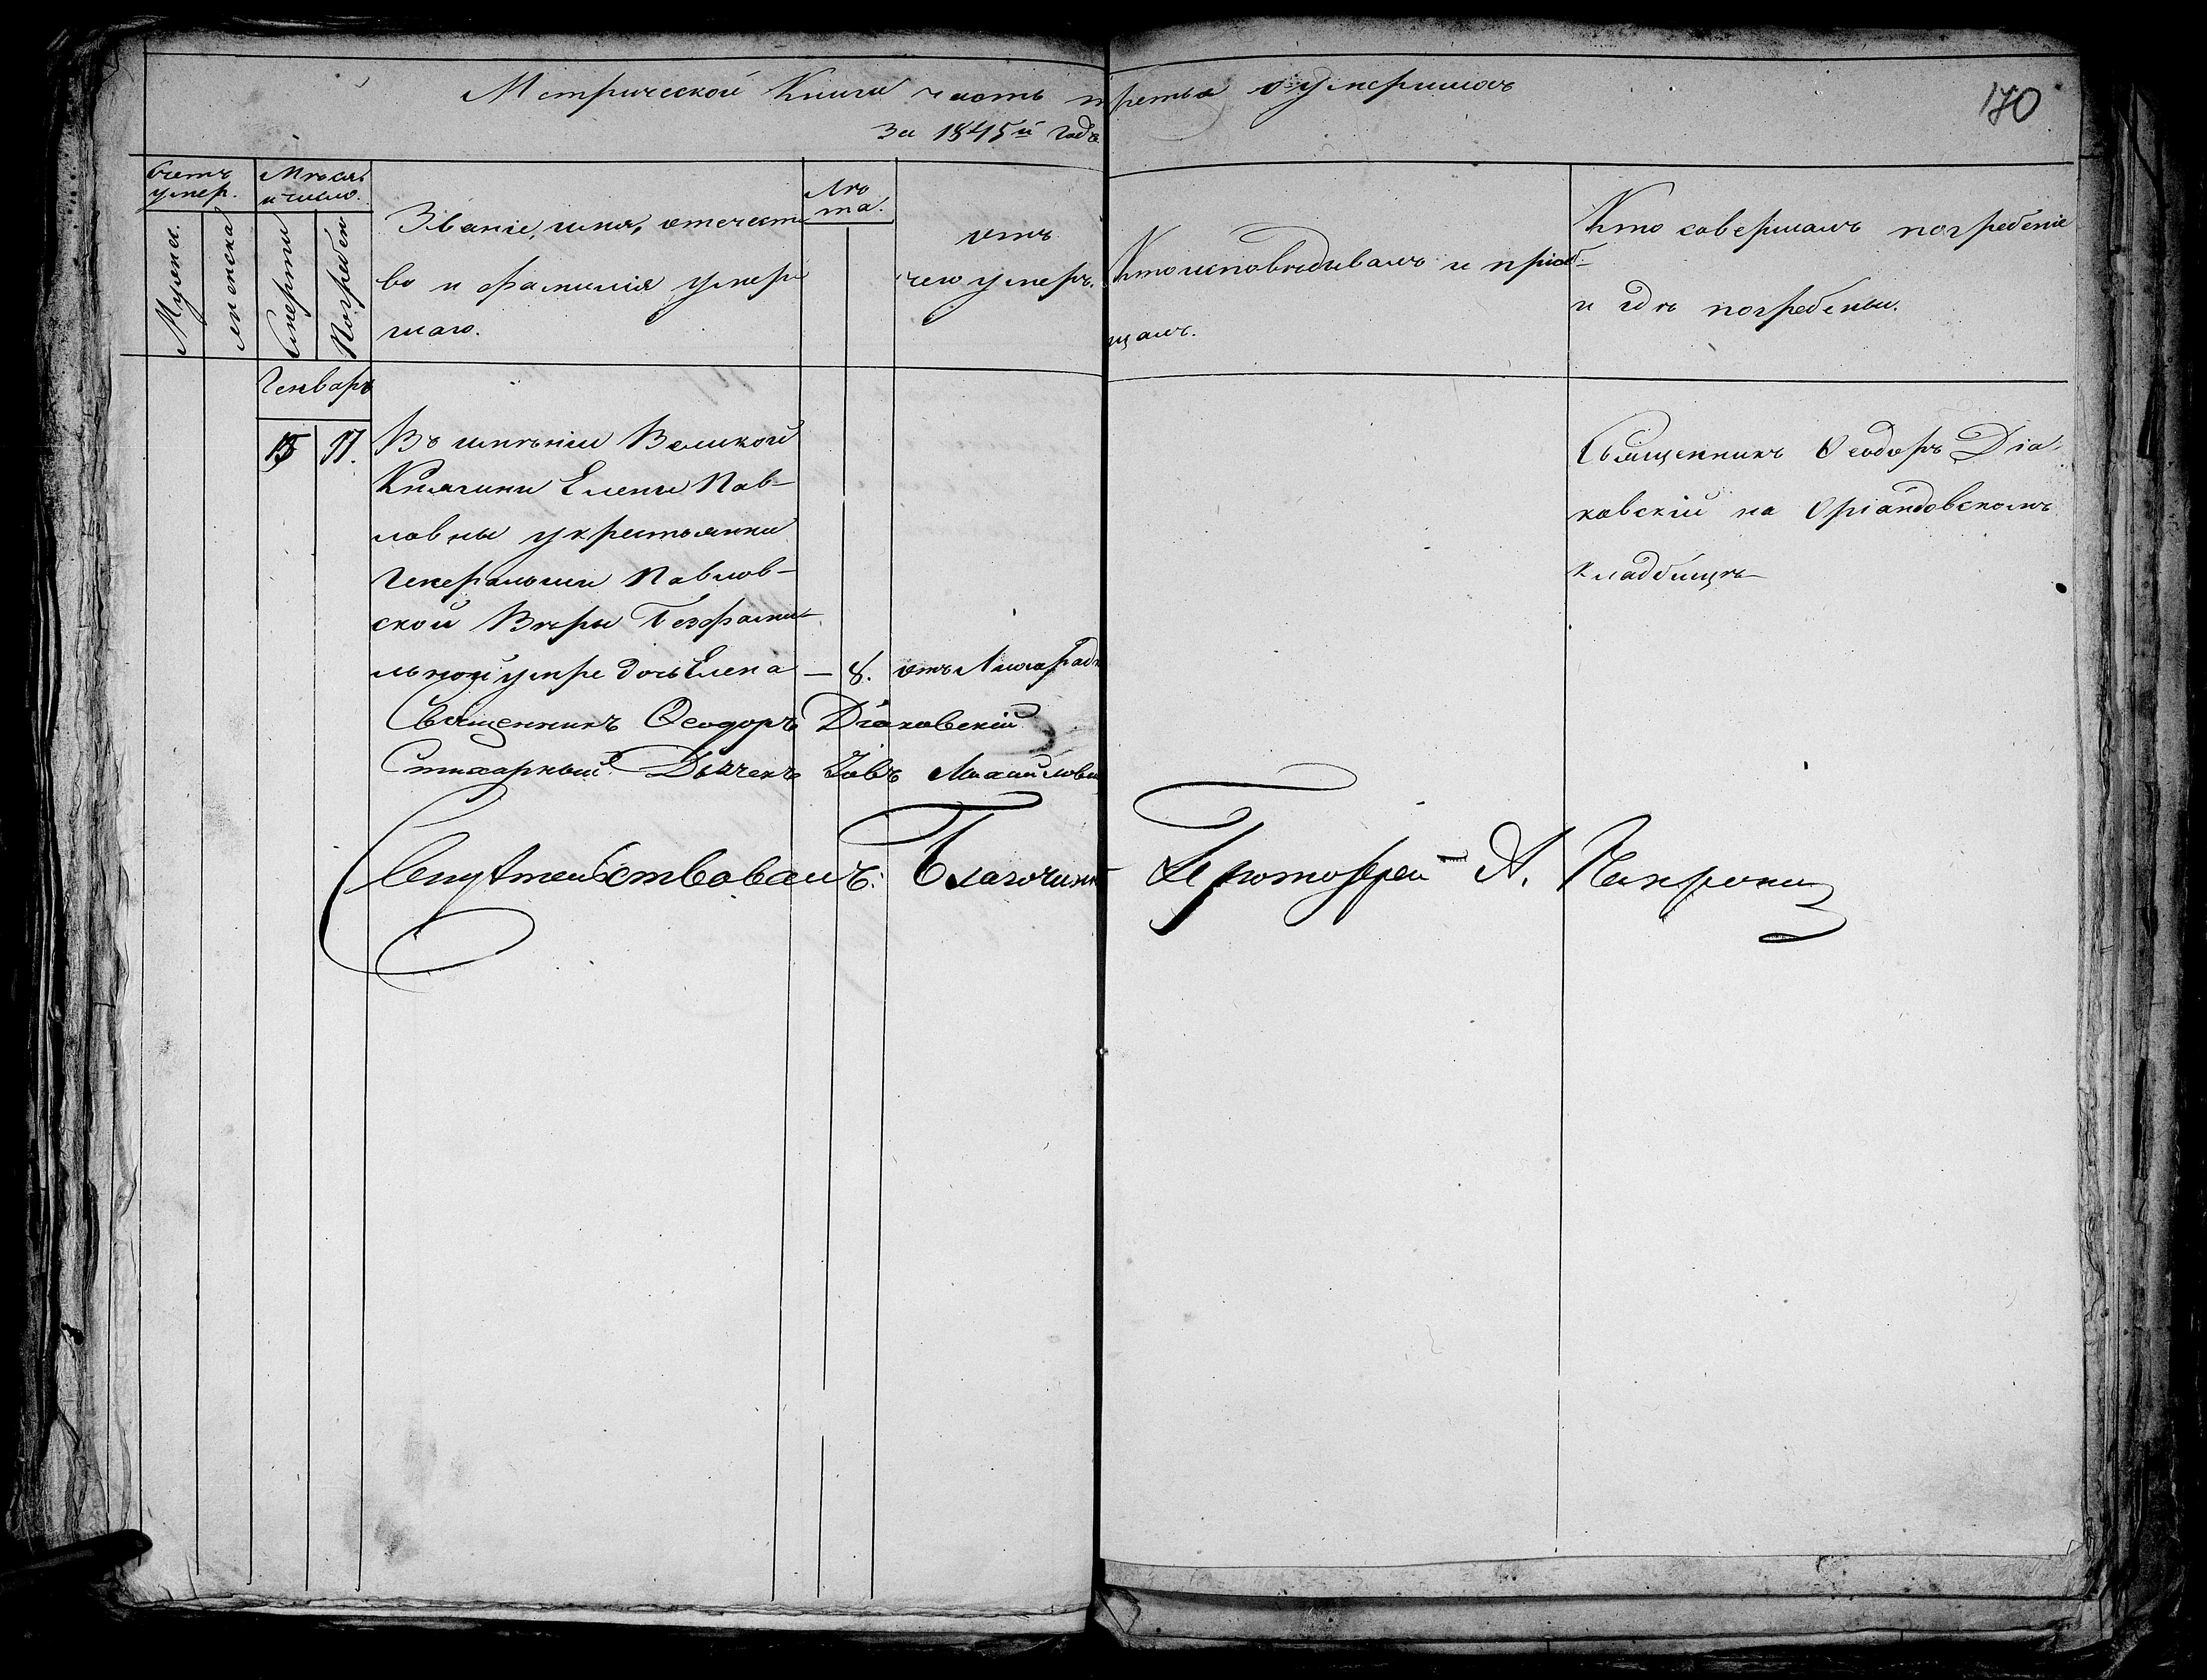 Метрической Книги часть третья о умершихъ
за 1845й годъ
170
Счетъ умер.
Мужеска.
женска
Мѣсяцъ и число.
Смерти
Погребен
Званіе, имя, отечест
во и фамилія умер
шаго.
Лѣ
та.
отъ
чего умеръ.
Кто исповѣдывалъ и пріоб-
щалъ.
Кто совершалъ погребеніе
и гдѣ погребены.
Генварь
15 17.
Въ имѣніи Великой
Княгини Елены Пав-
ловны у крестьянки
Генеральши Павлов-
ской Вѣры Безфами-
льной умре дочь Елена — 8. отъ
Священникъ Ѳеодоръ Діа-
ковскій на Оріандовскомъ
кладбищѣ
Священникъ Ѳеодоръ Діаковскій
Стихарный Дьячекъ Іовъ Михайлови
Свидѣтельствовалъ: Благочинн Протоіерей А.